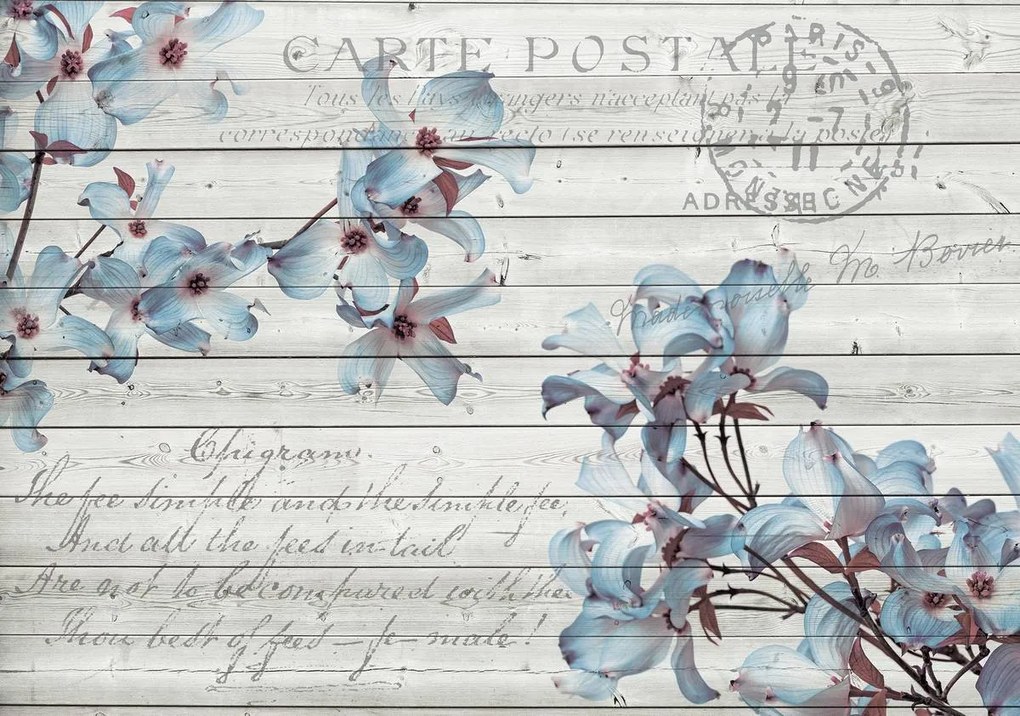 CARTE POSTALE
Tous les Pays étrangers n'acceptent pas la
correspondance au recto (se renseigner à la poste)
PARIS-
ADRESSE
Mademoiselle M. Bovier
Epigram.
The fee simple and the simple fee,
And all the fees in tail
Are not to be compared with thee
Thou best of fees - fe-male!